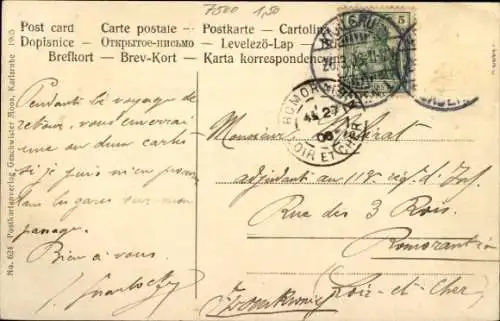 7500 1,50
Post card — Carte postale — Postkarte — Cartolina
Dopisnice — Открытое-письмо — Levelező-Lap —
Brefkort — Brev-Kort — Karta korrespondenc
5
ROMOR
45 27
06
LOIR ET CHER
Pendant le voyage de
retour, vous enverrai
une ou deux cartes
si je puis m'en procurer
dans les gares sur mon
passage.
Bien à vous.
Monsieur
adjudant au 113e rég. d'Inf.
Rue des 3 Rois.
Romorantin
(Loir-et-Cher)
No. 624 Postkartenverlag Geschwister Moos, Karlsruhe 1905